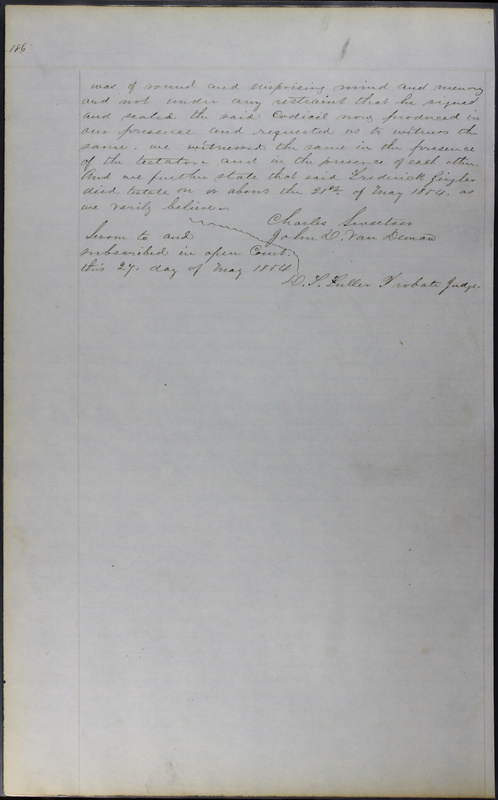 186
was of sound and disposing mind and memory
and not under any restraint that he signed
and sealed the said Codicil now produced in
our presence and requested us to witness the
same. we witnessed the same in the presence
of the testator and in the presence of each other
And we further state that said Frederick Zeigler
died testate on or about the 21st of May 1854. as
we verily believe
Charles Sweetser
John D. Van Deman
Sworn to and
subscribed in open Court.
this 27. day of May 1854
T. Fuller Probate Judge.